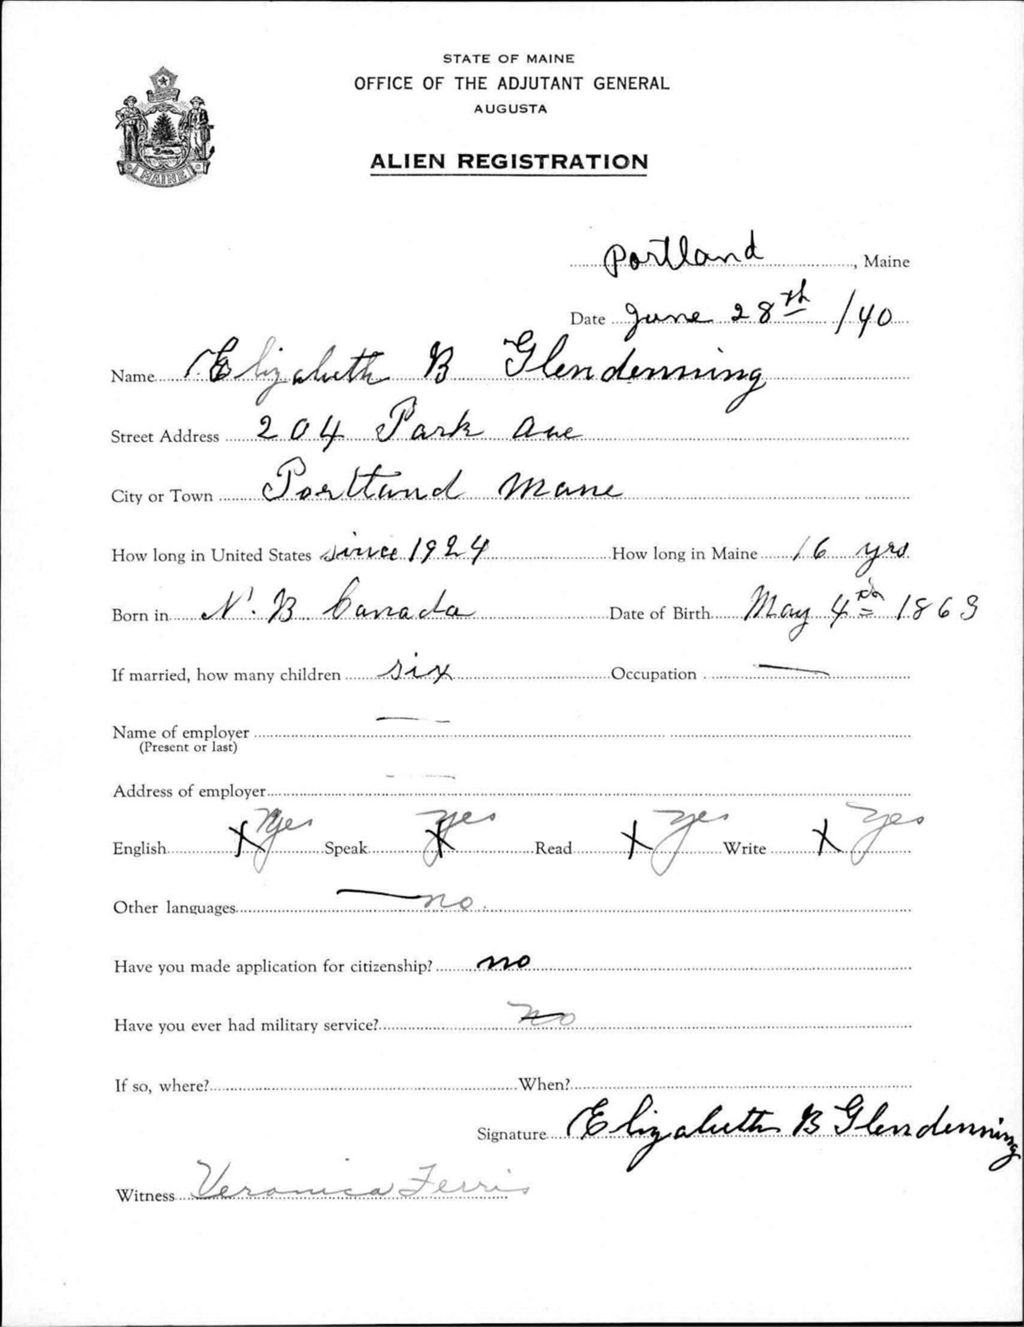 STATE OF MAINE
OFFICE OF THE ADJUTANT GENERAL
AUGUSTA
ALIEN REGISTRATION
MAINE
Portland, Maine
Date June 28th /40
Name Elizabeth B Glendenning
Street Address 204 Park Ave
City or Town Portland Mane
How long in United States since 1924 How long in Maine 16 yrs
Born in N. B. Canada Date of Birth May 4th 1863
If married, how many children six Occupation —
Name of employer — -
(Present or last)
Address of employer - —
English X yes Speak X yes Read X yes Write X yes
Other languages — no
Have you made application for citizenship? no
Have you ever had military service? no
If so, where? When?
Signature Elizabeth B Glendenning
Witness Veronica Ferris